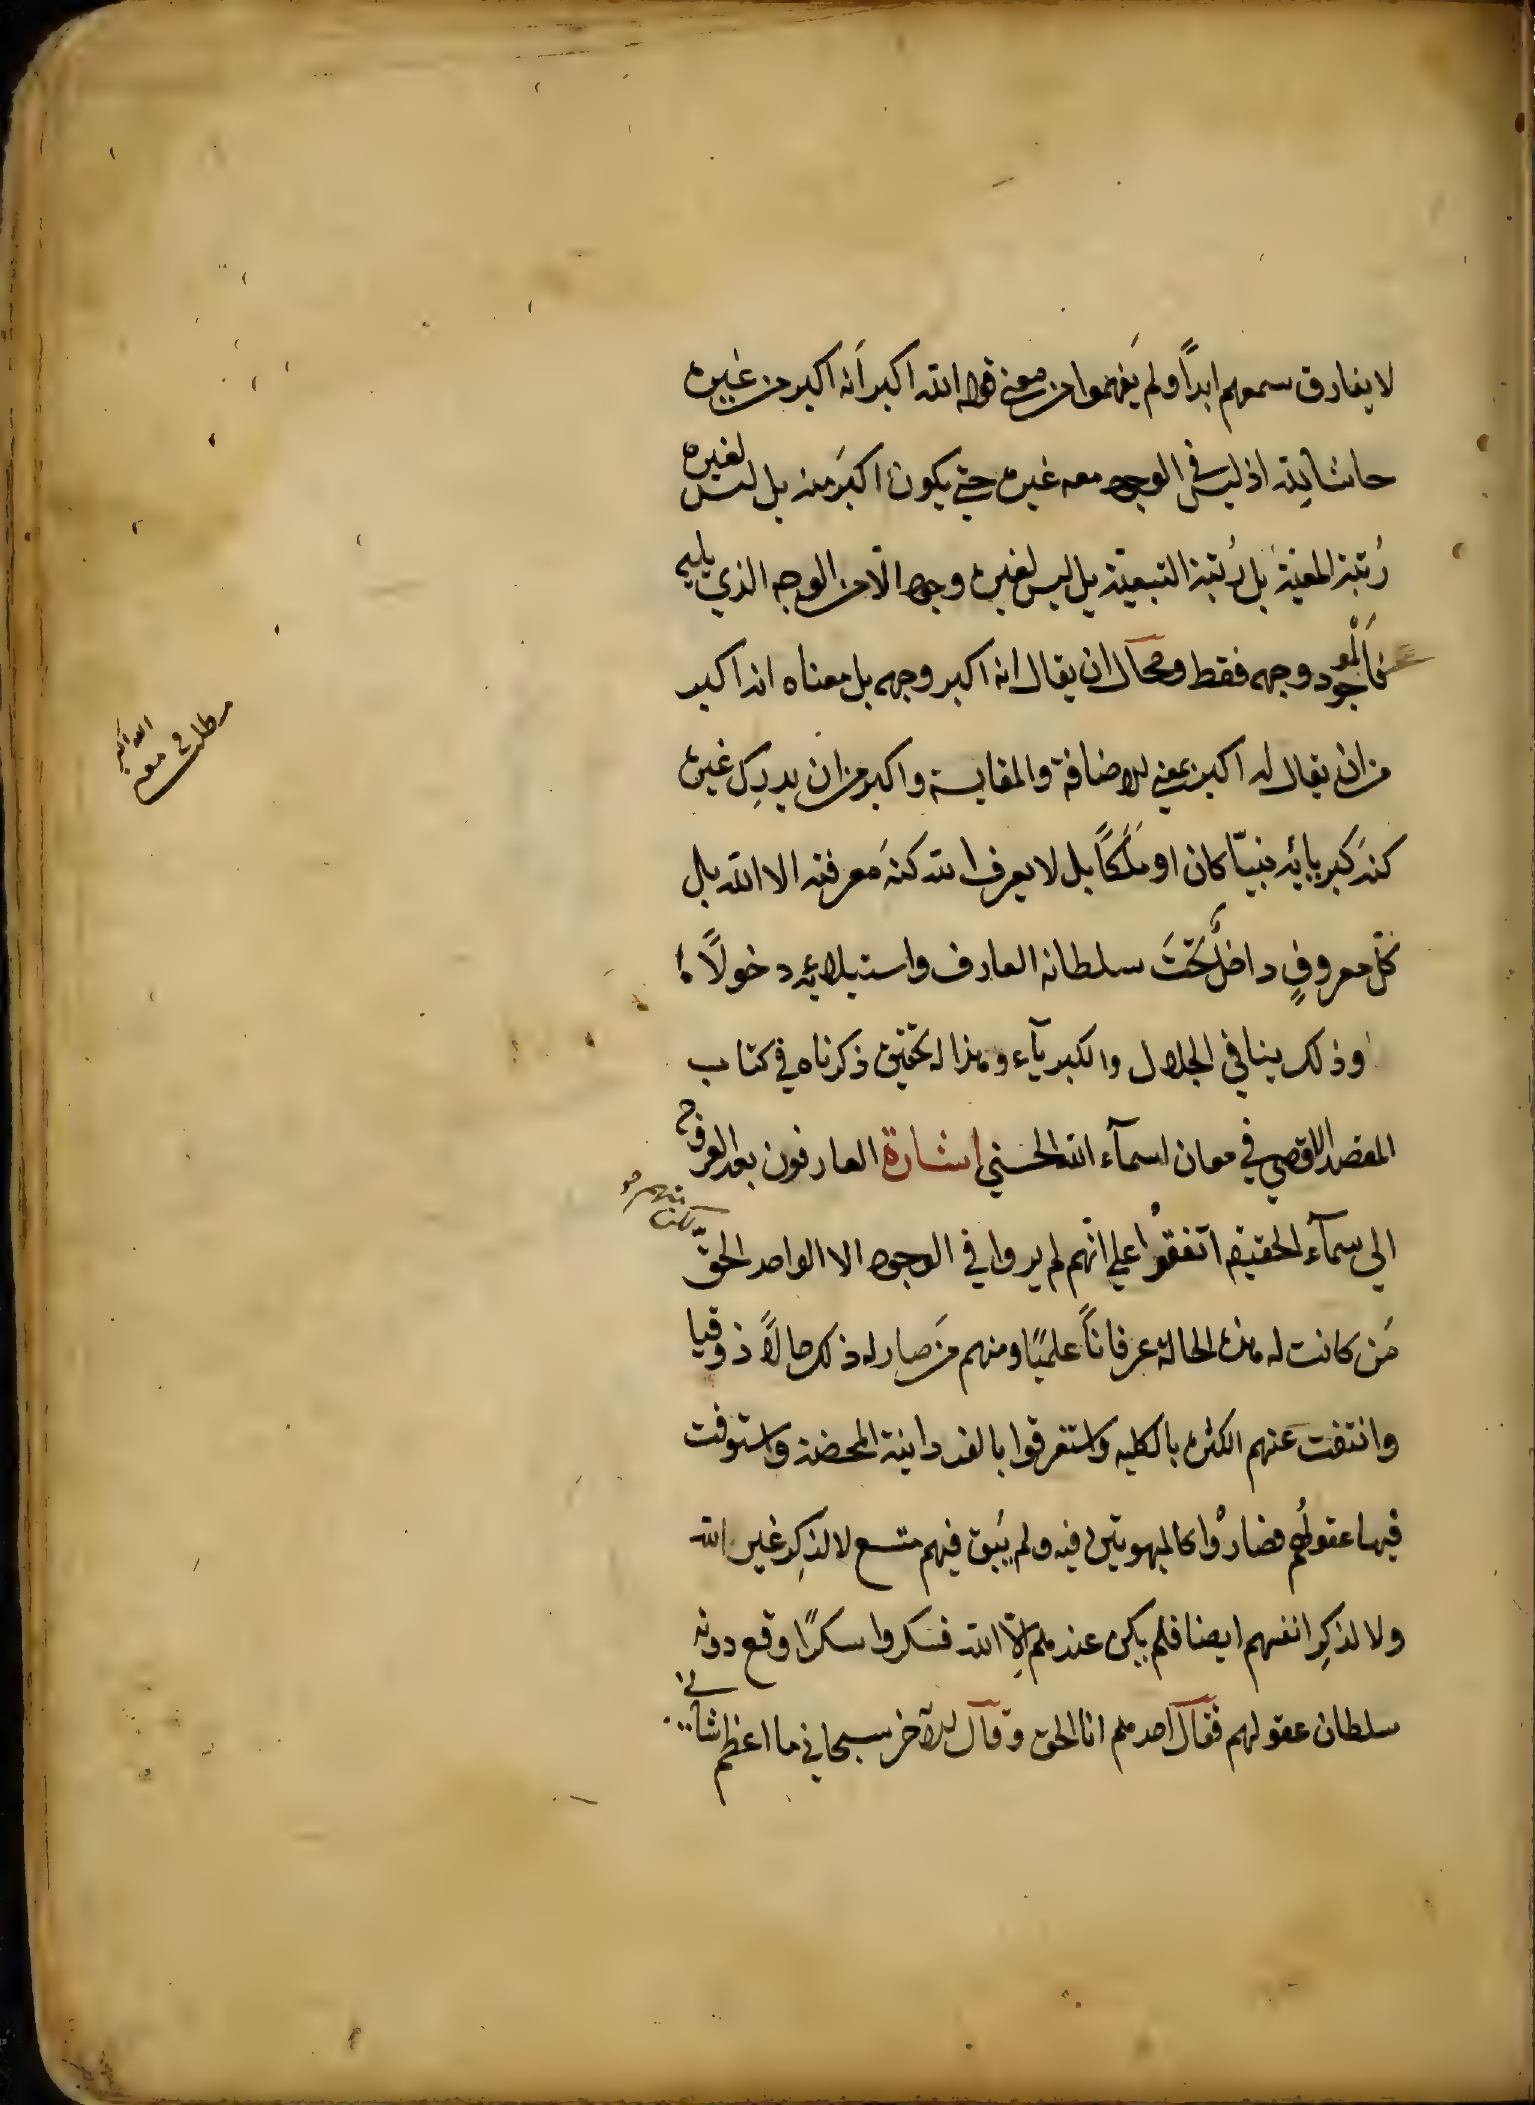 لا يفارق سمعهم ابداً ولم يَفهموا من معنى قوله الله اكبر اَنه اكبر من غيره
حاشا لِلّه اذ ليس في الوجود معه غيره حتى يكون اكبَر منه بل ليس لغيره
رُتبة المعيّة بل رُتبة التبعيّة بل ليس لغيره وجود الّا من الوجه الذي يليه
فاَلْموجود وجهه فقط ومحآل ان يقال انه اكبر وجهه بل معناه انه اكبر
من ان يقال له اكبر بمعنى للاضافة والمقايسة واكبر من ان يدرِك غيره
كنهَ كبريائه نبيّا كان او مَلَكاً بل لا يعرف الله كنهَ معرفته الا الله بل
كلّ معروفٍ داخلٌ تحَتَ سلطانه العارف واستيلائه دخولاً ما
وذلك ينافي الجلال والكبريآء وهذا له تحقيق ذكرناه في كتاب
المقصد الاقصى في معان اسمآء الله الحسنى إشارة العارفون بعد العروج
الي سمآء الحقيقه اتفقُوا علي انّهم لم يروا في الوجود الا الواحد الحقّ
لكن منهم من
مَن كانت له هذه الحالة عرفاناً علميًا ومنهم مَن صار له ذلك حالاً ذوقيا
وانتفت عَنهم الكثره بالكليه واستغرقوا بالفردانية المحضة واستوفت
فيها عقولُهم فصارُوا كالمبهوتين فيه ولم يَبق فيهم متسع لا لذكِر غير الله
ولا لذكِر انفسهم ايضا فلم يكن عندهم اِلّا الله فسكروا سكرًا وقع دونه
سلطان عقولهم فقآل احدهم انا الحق وقآل للآخر سبحاني ما اعظم شأني
مطلب في معنى الله اكبر